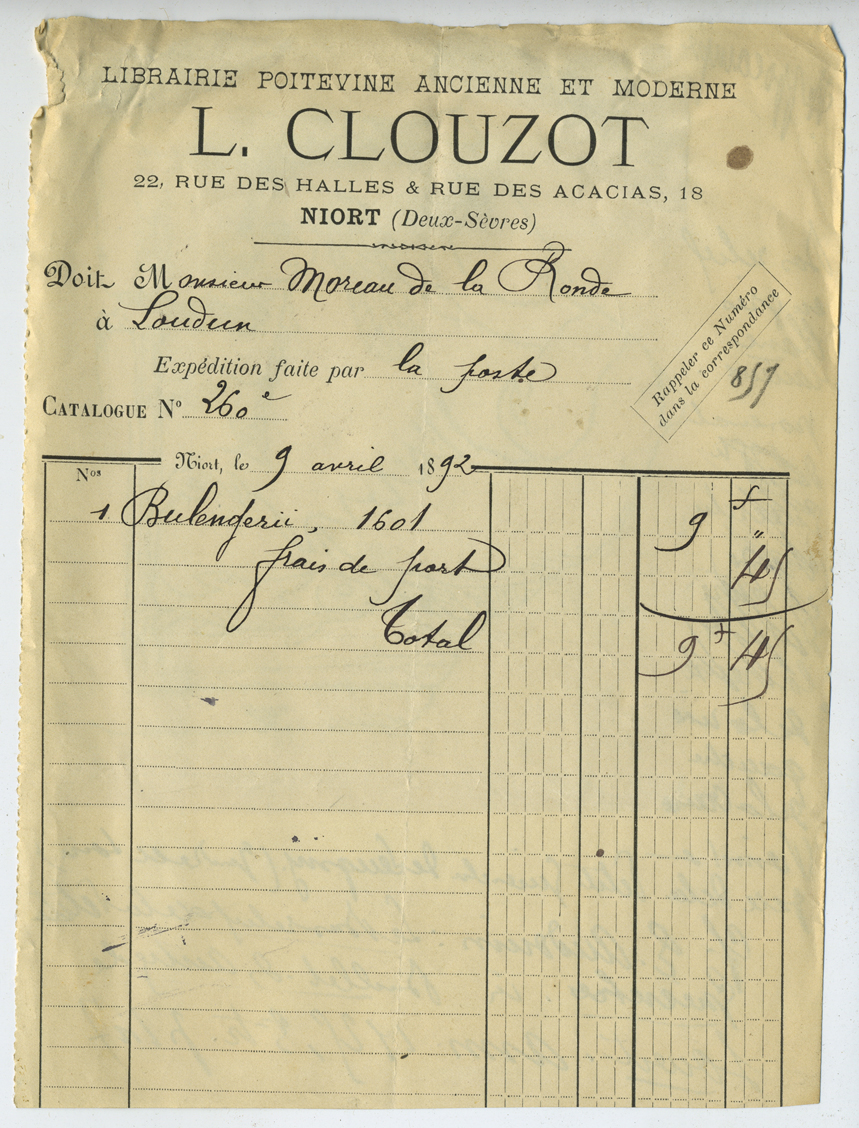 LIBRAIRIE POITEVINE ANCIENNE ET MODERNE
L. CLOUZOT
22, RUE DES HALLES & RUE DES ACACIAS, 18
NIORT (Deux-Sèvres)
Doit Monsieur Moreau de la Ronde
à Loudun
Expédition faite par la poste
Rappeler ce Numéro
dans la correspondance
859
CATALOGUE Nº 260 e
Niort, le 9 avril 1892
Nos
1 Bulengerii, 1601 9 f "
frais de port 45
Total 9 f 45